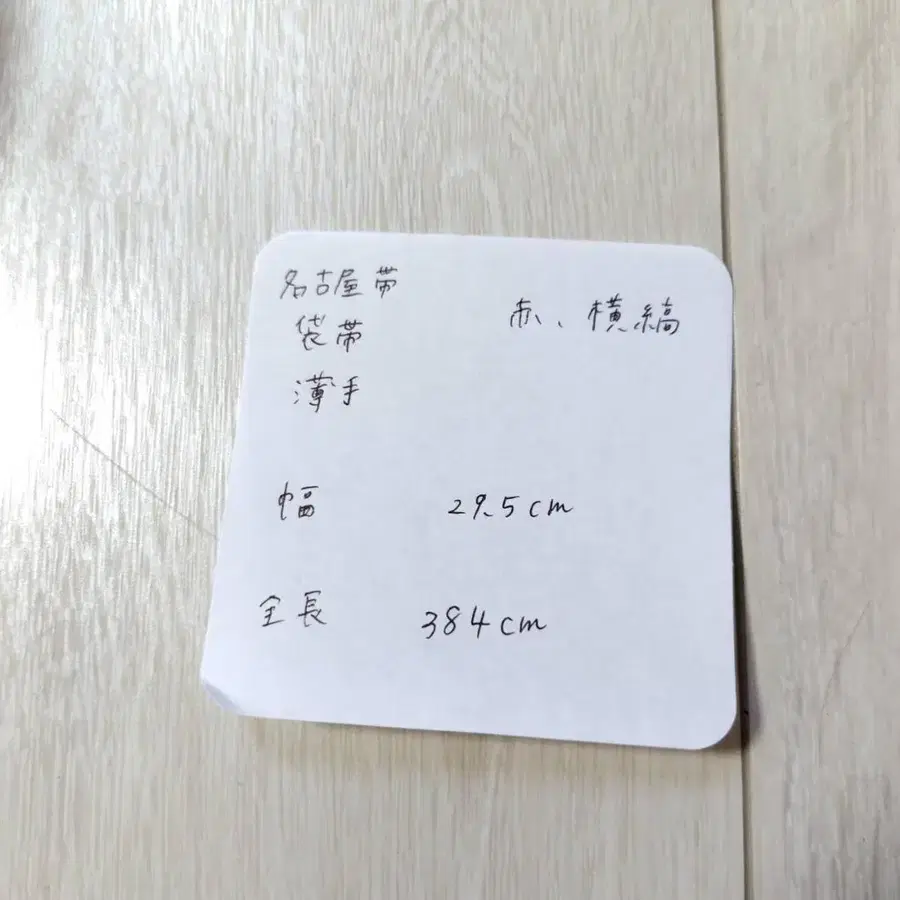 名古屋帯
赤、横縞
袋帯
薄手
幅 29.5cm
全長 384cm